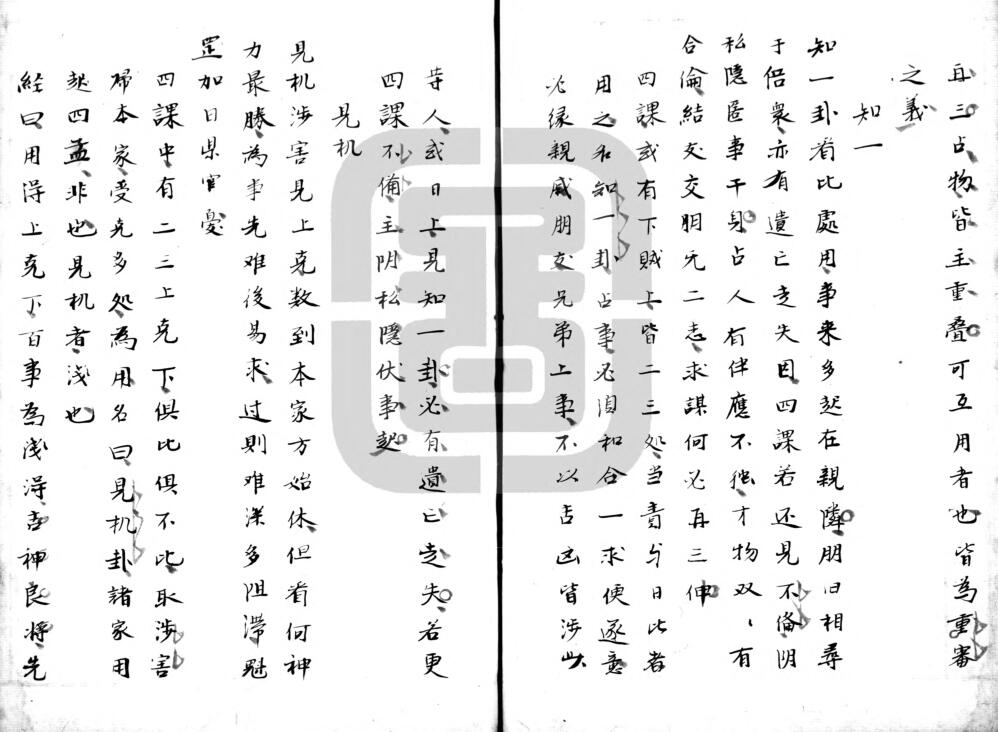 再三占物皆主重叠可互用者也皆為重審
之義
知一
知一卦看比處用事来多起在親隣朋旧相尋
于倍衆亦有遺亡走失因四課若还見不偹阴
私隱匿事干身占人有伴應不独才物双々有
合倫結交交朋无二志求謀何必再三伸
四課或有下賊上皆二三処当責与日比者
用之名知一卦占事必須和合一求便逐意
必缘親戚朋友兄弟上事不以吉凶皆涉此
荨人或日上見知一卦必有遺亡走失若更
四課不偹主阴私隱伏事起
見机
見机涉害見上克数到本家方始休但看何神
力最勝為事先难後易求过则难深多阻滯魁
罡加日県官憂
四課中有二三上克下俱比俱不比取涉害
㷌本家受克多処為用名曰見机卦諸家用
起四孟非也見机者浅也
経曰用得上克下百事為浅得吉神良将先